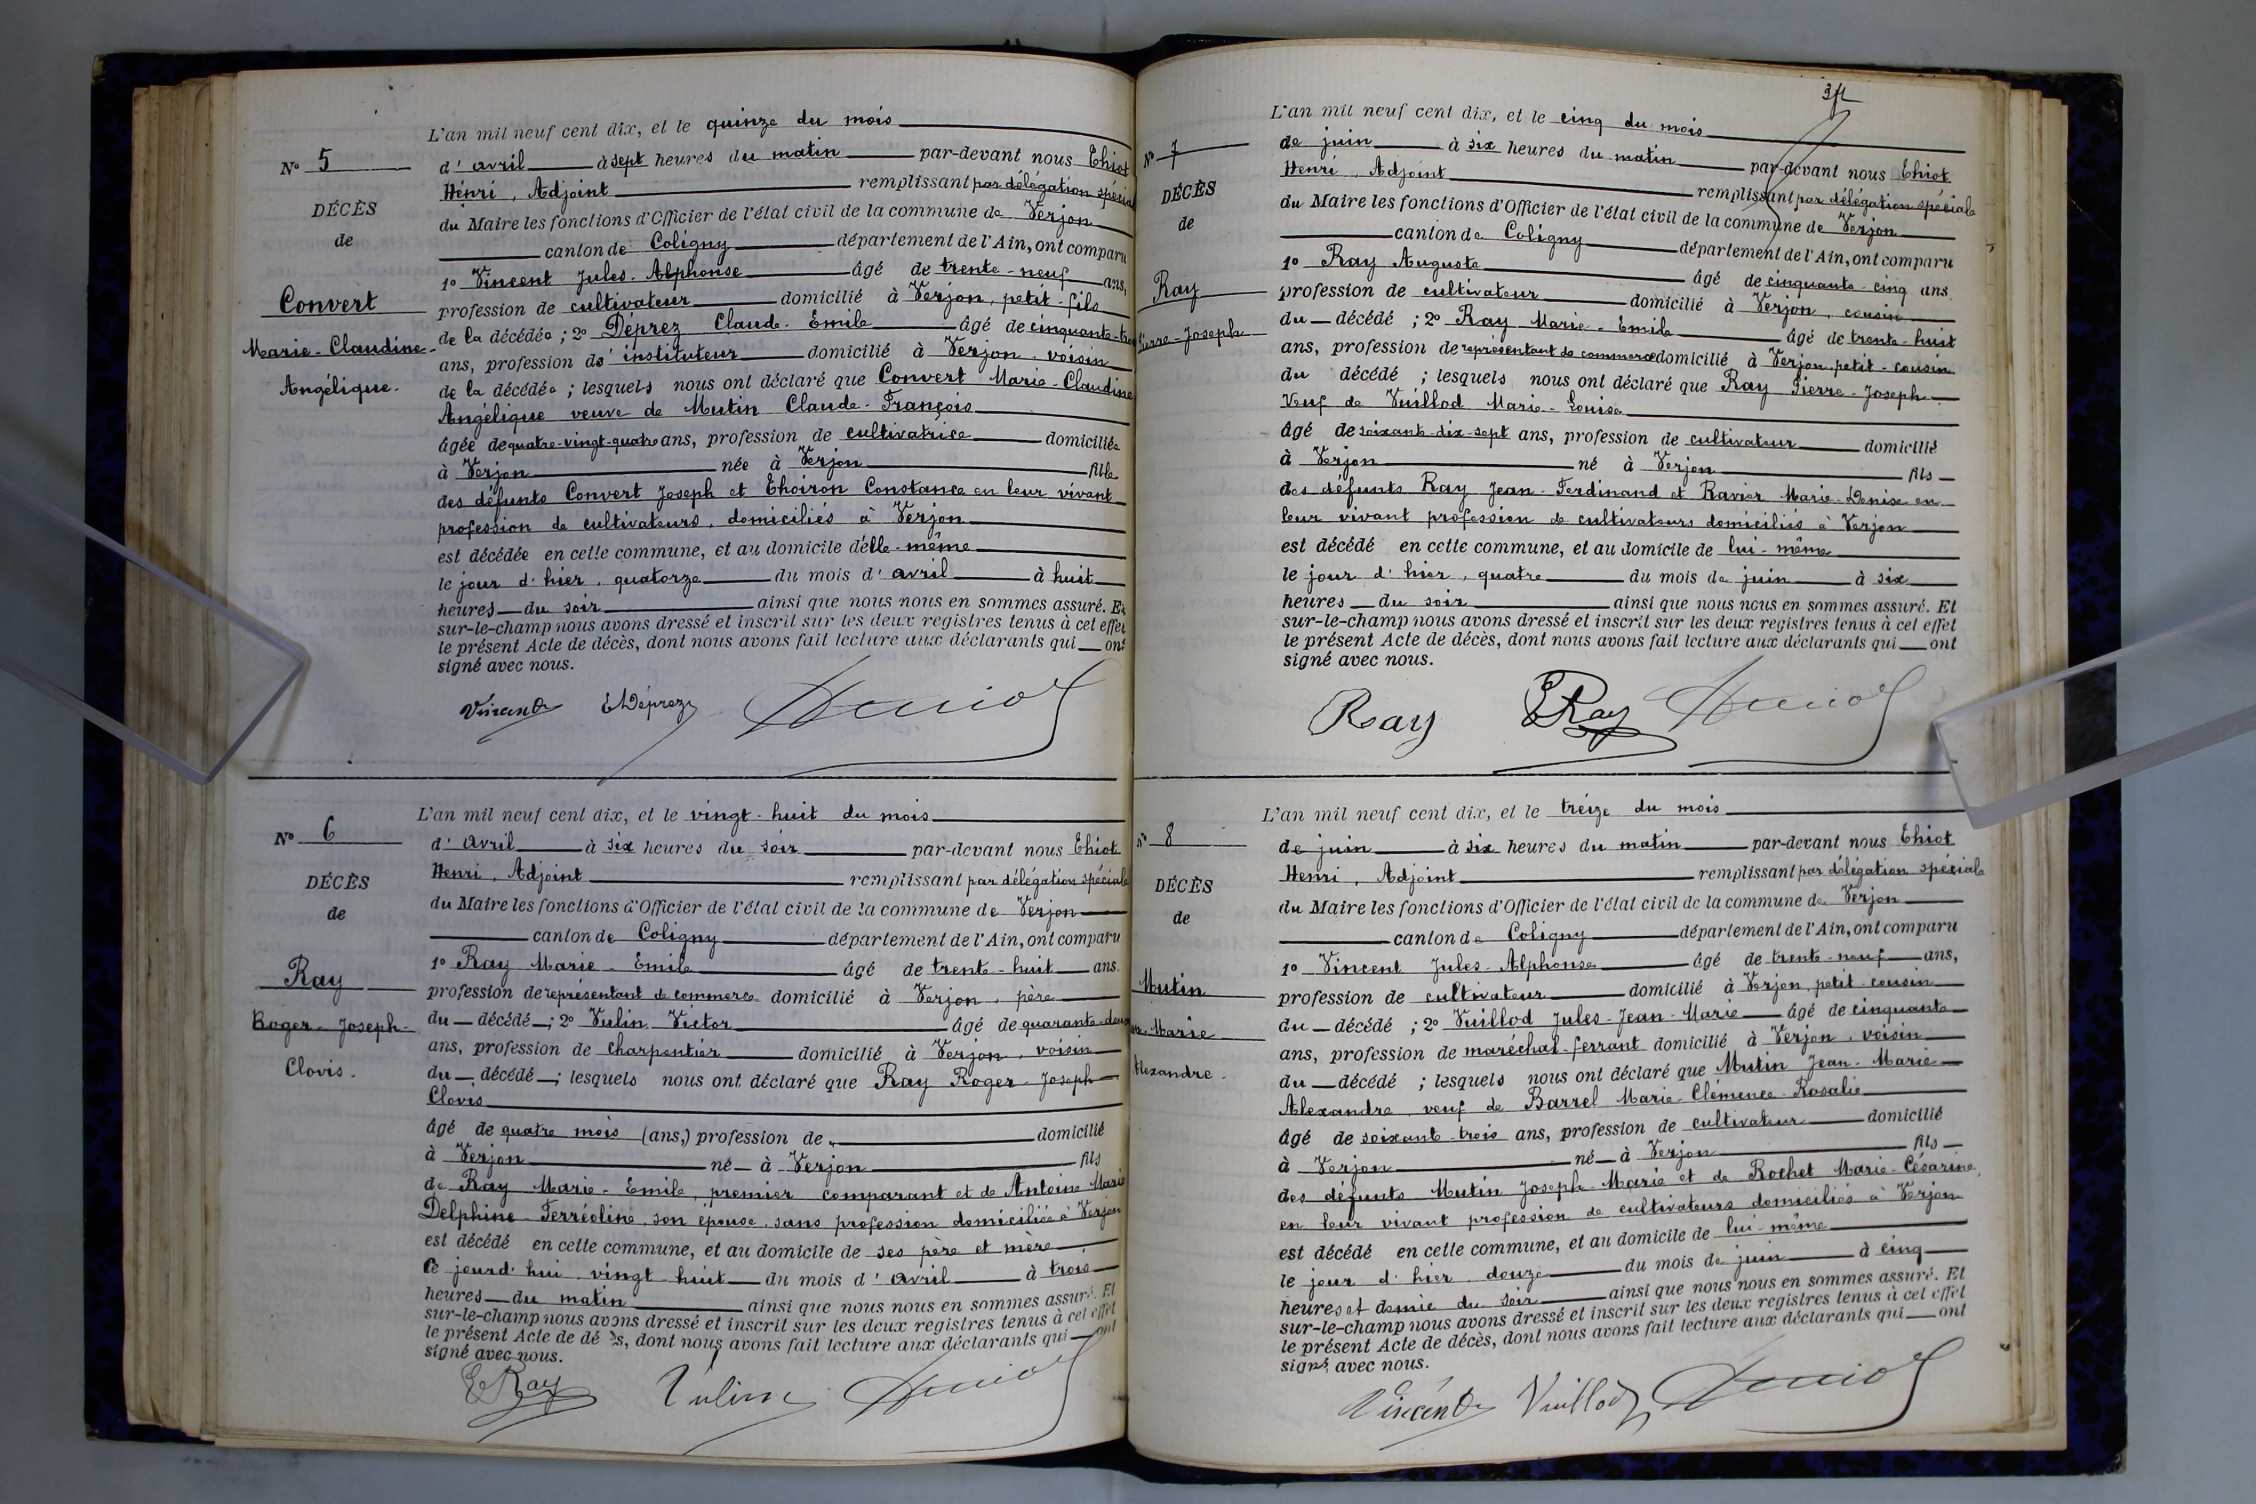 L'an mil neuf cent dix, et le quinze du mois
N° 5
d'avril à sept heures du matin par-devant nous Thiot
Henri, Adjoint remplissant par délégation spéciale
DÉCÈS
du Maire les fonctions d'Officier de l'état civil de la commune de Verjon
de
canton de Coligny département de l'Ain, ont comparu
1° Vincent Jules-Alphonse âgé de trente-neuf ans,
Convert
profession de cultivateur domicilié à Verjon, petit-fils
de la décédée ; 2° Déprez Claude-Emile âgé de cinquante-
Marie-Claudine-
ans, profession d'instituteur domicilié à Verjon, voisin
Angélique.
de la décédée ; lesquels nous ont déclaré que Convert Marie-Claudine
Angélique veuve de Mutin Claude-François
âgée de quatre-vingt-quatre ans, profession de cultivatrice domiciliée
à Verjon née à Verjon fille
des défunts Convert Joseph et Thoiron Constance en leur vivant
profession de cultivateurs, domiciliés à Verjon
est décédée en cette commune, et au domicile d'elle-même
le jour d'hier, quatorze du mois d'avril à huit
heures du soir ainsi que nous nous en sommes assuré. Et
sur-le-champ nous avons dressé et inscrit sur les deux registres tenus à cet effet
le présent Acte de décès, dont nous avons fait lecture aux déclarants qui ont
signé avec nous.
Vincent E Déprez
L'an mil neuf cent dix, et le vingt-huit du mois
N° 6
d'avril à six heures du soir par-devant nous Thiot
Henri, Adjoint remplissant par délégation spéciale
DÉCÈS
du Maire les fonctions d'Officier de l'état civil de la commune de Verjon
de
canton de Coligny département de l'Ain, ont comparu
1° Ray Marie-Emile âgé de trente-huit ans
Ray
profession de représentant de commerce domicilié à Verjon, père
Roger-Joseph-
du décédé ; 2° Vulin Victor âgé de quarante-deux
ans, profession de charpentier domicilié à Verjon, voisin
Clovis.
du décédé ; lesquels nous ont déclaré que Ray Roger-Joseph
Clovis
âgé de quatre mois (ans,) profession de domicilié
à Verjon né à Verjon fils
de Ray Marie-Emile, premier comparant et de Antoine Marie
Delphine-Ferréoline, son épouse, sans profession domiciliée à Verjon
est décédé en cette commune, et au domicile de ses père et mère
ce jourd'hui vingt-huit du mois d'avril à trois
heures du matin ainsi que nous nous en sommes assuré. Et
sur-le-champ nous avons dressé et inscrit sur les deux registres tenus à cet effet
le présent Acte de décès, dont nous avons fait lecture aux déclarants qui ont
signé avec nous.
E Ray Vulin
L'an mil neuf cent dix, et le cinq du mois
N° 7
de juin à six heures du matin par-devant nous Thiot
Henri, Adjoint remplissant par délégation spéciale
DÉCÈS
du Maire les fonctions d'Officier de l'état civil de la commune de Verjon
de
canton de Coligny département de l'Ain, ont comparu
1° Ray Auguste âgé de cinquante-cinq ans
Ray
profession de cultivateur domicilié à Verjon, cousin
du décédé ; 2° Ray Marie-Emile âgé de trente-huit
Pierre-Joseph
ans, profession de représentant de commerce domicilié à Verjon, petit-cousin
du décédé ; lesquels nous ont déclaré que Ray Pierre-Joseph
Veuf de Vuillod Marie-Louise
âgé de soixante-dix-sept ans, profession de cultivateur domicilié
à Verjon né à Verjon fils
des défunts Ray Jean-Ferdinand et Ravier Marie-Denise en
leur vivant profession de cultivateurs domiciliés à Verjon
est décédé en cette commune, et au domicile de lui-même
le jour d'hier, quatre du mois de juin à six
heures du soir ainsi que nous nous en sommes assuré. Et
sur-le-champ nous avons dressé et inscrit sur les deux registres tenus à cet effet
le présent Acte de décès, dont nous avons fait lecture aux déclarants qui ont
signé avec nous.
Ray E Ray
L'an mil neuf cent dix, et le treize du mois
N° 8
de juin à six heures du matin par-devant nous Thiot
Henri, Adjoint remplissant par délégation spéciale
DÉCÈS
du Maire les fonctions d'Officier de l'état civil de la commune de Verjon
de
canton de Coligny département de l'Ain, ont comparu
1° Vincent Jules-Alphonse âgé de trente-neuf ans,
Mutin
profession de cultivateur domicilié à Verjon, petit-cousin
du décédé ; 2° Vuillod Jules-Jean-Marie âgé de cinquante
Marie
ans, profession de maréchal-ferrant domicilié à Verjon, voisin
Alexandre.
du décédé ; lesquels nous ont déclaré que Mutin Jean-Marie
Alexandre, veuf de Barrel Marie-Clémence-Rosalie
âgé de soixante-trois ans, profession de cultivateur domicilié
à Verjon né à Verjon fils
des défunts Mutin Joseph-Marie et de Rochet Marie-Césarine,
en leur vivant profession de cultivateurs domiciliés à Verjon
est décédé en cette commune, et au domicile de lui-même
le jour d'hier douze du mois de juin à cinq
heures et demie du soir ainsi que nous nous en sommes assuré. Et
sur-le-champ nous avons dressé et inscrit sur les deux registres tenus à cet effet
le présent Acte de décès, dont nous avons fait lecture aux déclarants qui ont
signé avec nous.
Vincent Vuillod